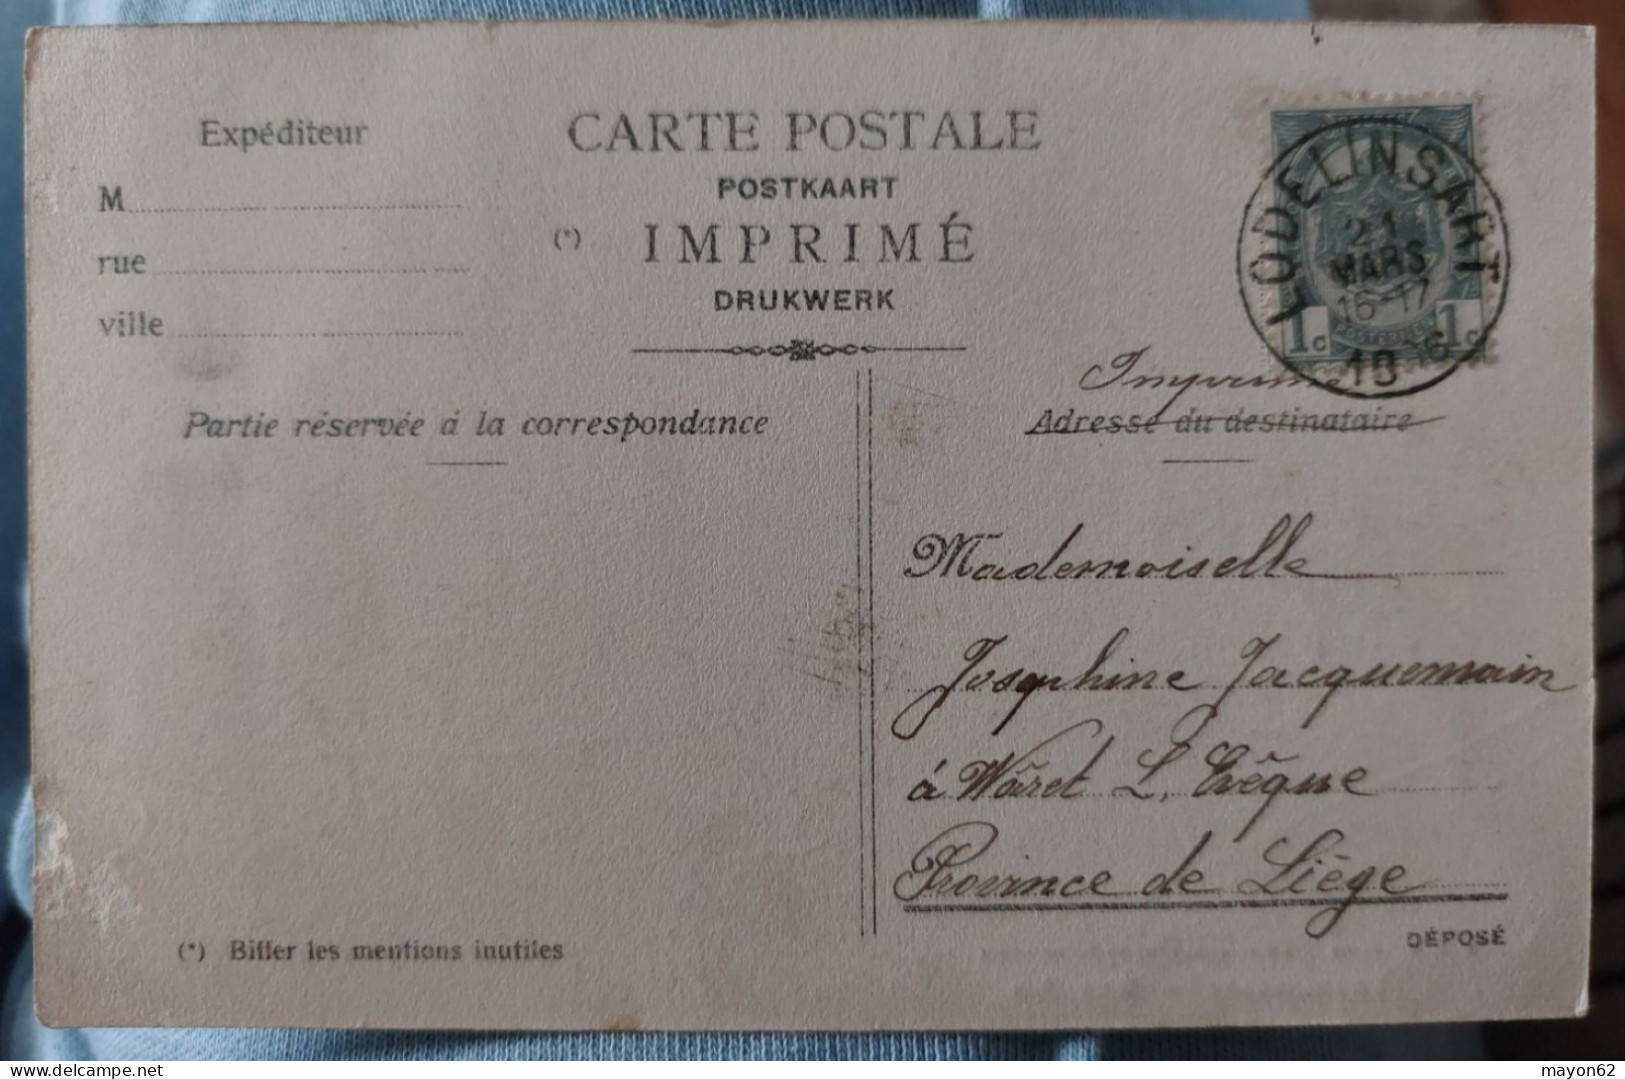 Expéditeur
M
rue
ville
CARTE POSTALE
POSTKAART
(*) IMPRIMÉ
DRUKWERK
LODELINSART
21
MARS
16-17
1c 1c
Imprimé
Partie réservée á la correspondance
Adresse du destinataire
Mademoiselle
Josephine Jacquemain
à Waret L. Evêque
Province de Liège
(*) Biffer les mentions inutiles
DÉPOSÉ
mayon62